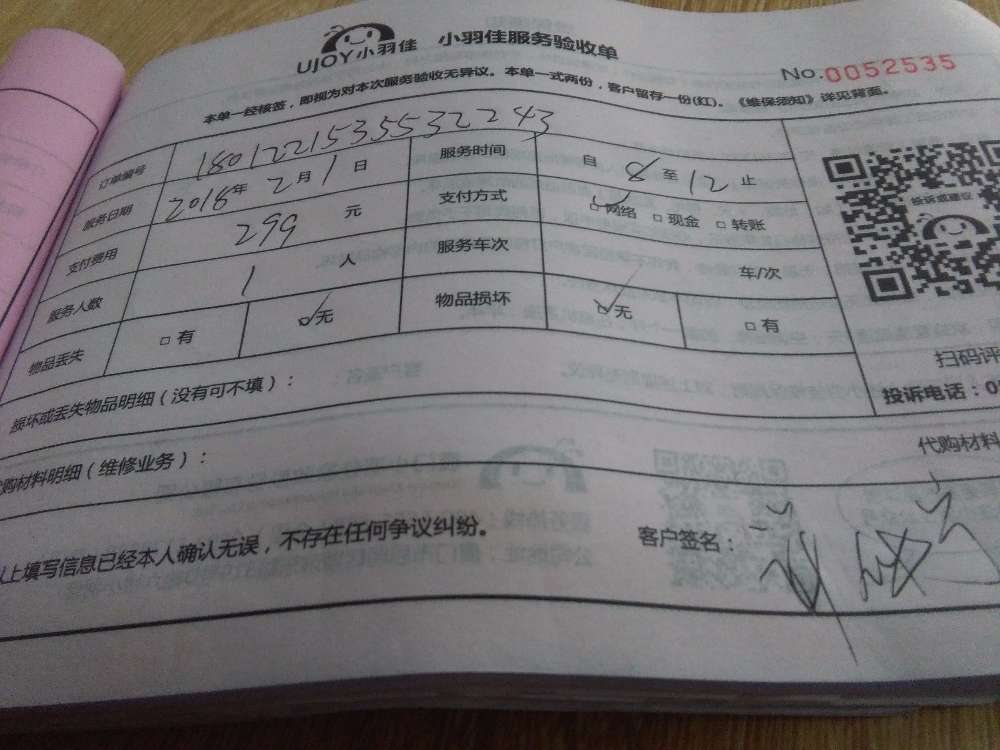 UJOY小羽佳 小羽佳服务验收单
No.0052535
本单一经核签，即视为对本次服务验收无异议。本单一式两份，客户留存一份(红)。《维保须知》详见背面。
订单编号 1801221535532243
服务日期 2018年2月1日 服务时间 自8至12止
支付费用 299元 支付方式 ☑网络 □现金 □转账
服务人数 1人 服务车次 车/次
物品丢失 □有 ☑无 物品损坏 ☑无 □有
投诉或建议
扫码评
损坏或丢失物品明细（没有可不填）：
投诉电话：0
购材料明细（维修业务）：
代购材料
上填写信息已经本人确认无误，不存在任何争议纠纷。
客户签名：